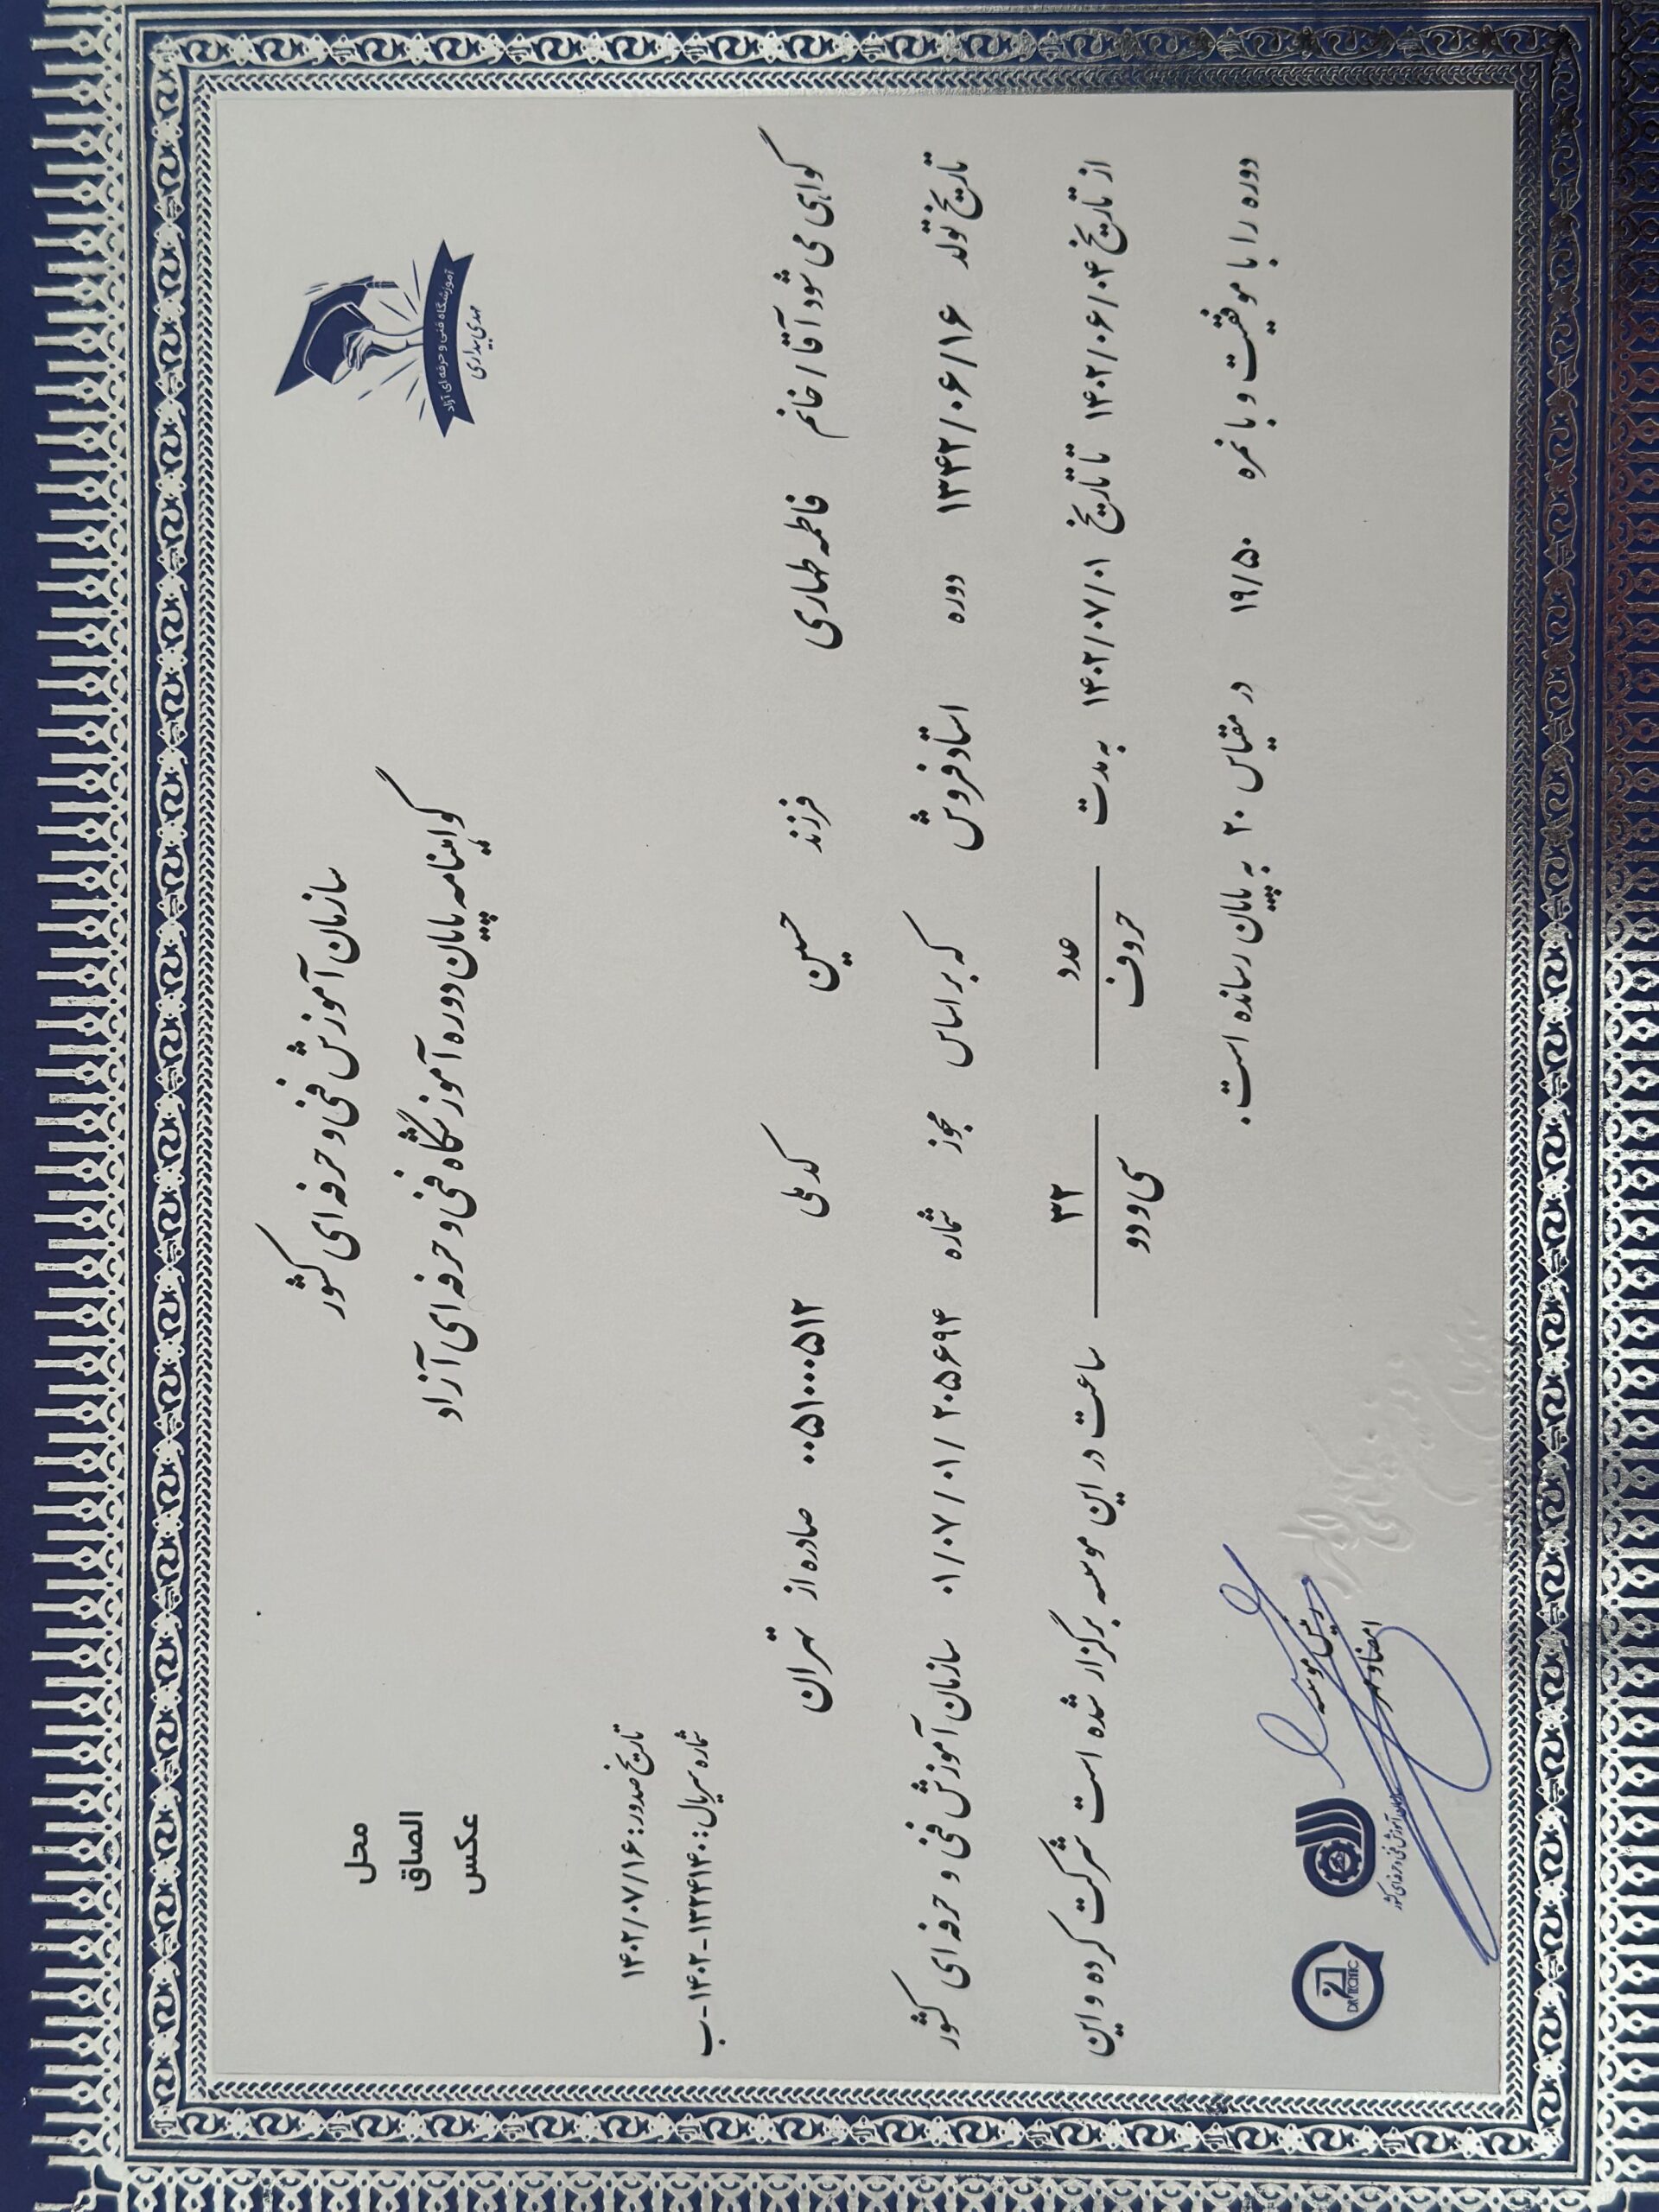 سازمان آموزش فنی و حرفه ای کشور
گواهینامه پایان دوره آموزشگاه فنی و حرفه ای آزاد
آموزشگاه فنی و حرفه ای آزاد
مهدی بیداری
محل
الصاق
عکس
تاریخ صدور: ۱۴۰۲/۰۷/۱۶
شماره سریال: ۱۴۰۲-۱۳۳۴۱۴۰-ب
گواهی می شود آقا / خانم فاطمه طهاری فرزند حسین کد ملی ۰۰۵۱۰۰۰۵۱۲ صادره از تهران
تاریخ تولد ۱۳۴۲/۰۶/۱۶ دوره استاد فروش که بر اساس مجوز شماره ۰۱/۰۷/۰۱/۲۰۵۶۹۴ سازمان آموزش فنی و حرفه ای کشور
از تاریخ ۱۴۰۲/۰۶/۰۴ تا تاریخ ۱۴۰۲/۰۷/۰۱ به مدت عدد حروف ۳۲ سی و دو ساعت در این موسسه برگزار شده است شرکت کرده و این
دوره را با موفقیت و با نمره ۱۹/۵۰ در مقیاس ۲۰ به پایان رسانده است.
رئیس موسسه
امضا و مهر
سازمان آموزش فنی و حرفه ای کشور
DrTraffic